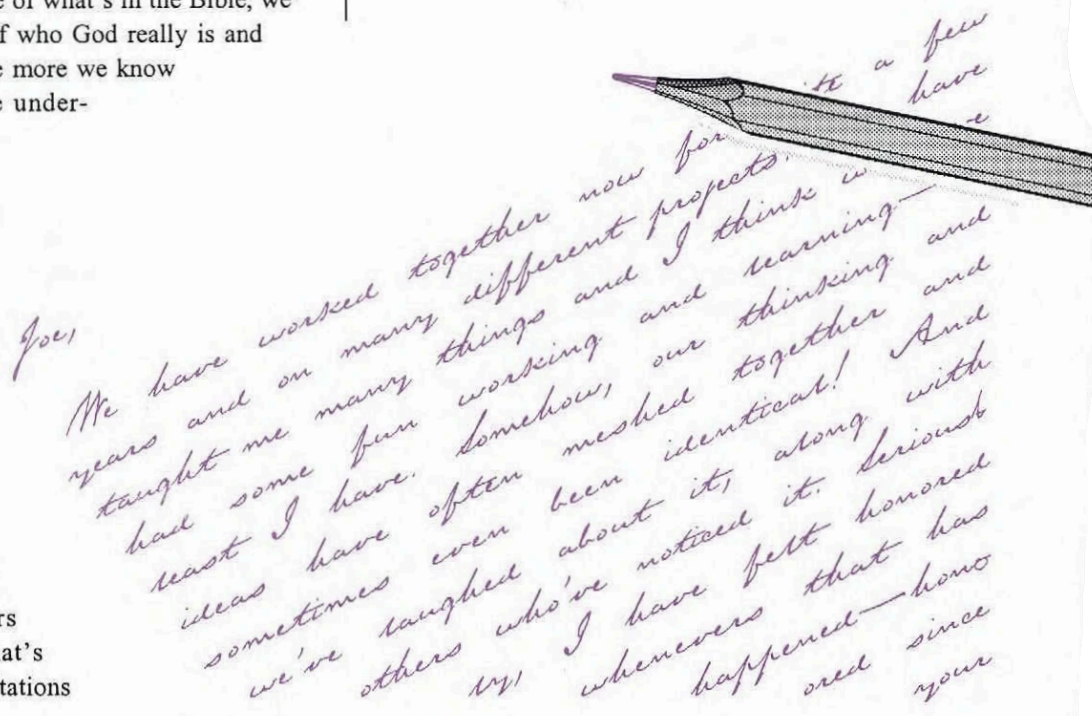 e of what's in the Bible, we
f who God really is and
e more we know
e under-
Joe,
We have worked together now for ite a few
years and on many different projects. have
taught me many things and I think w e
had some fun working and learning—
least I have. Somehow, our thinking and
ideas have often meshed together and
sometimes even been identical! And
we've laughed about it, along with
others who've noticed it. Seriousl
ly, I have felt honored
whenevers that has
happened—hono
ored since
your
rs
at's
tations